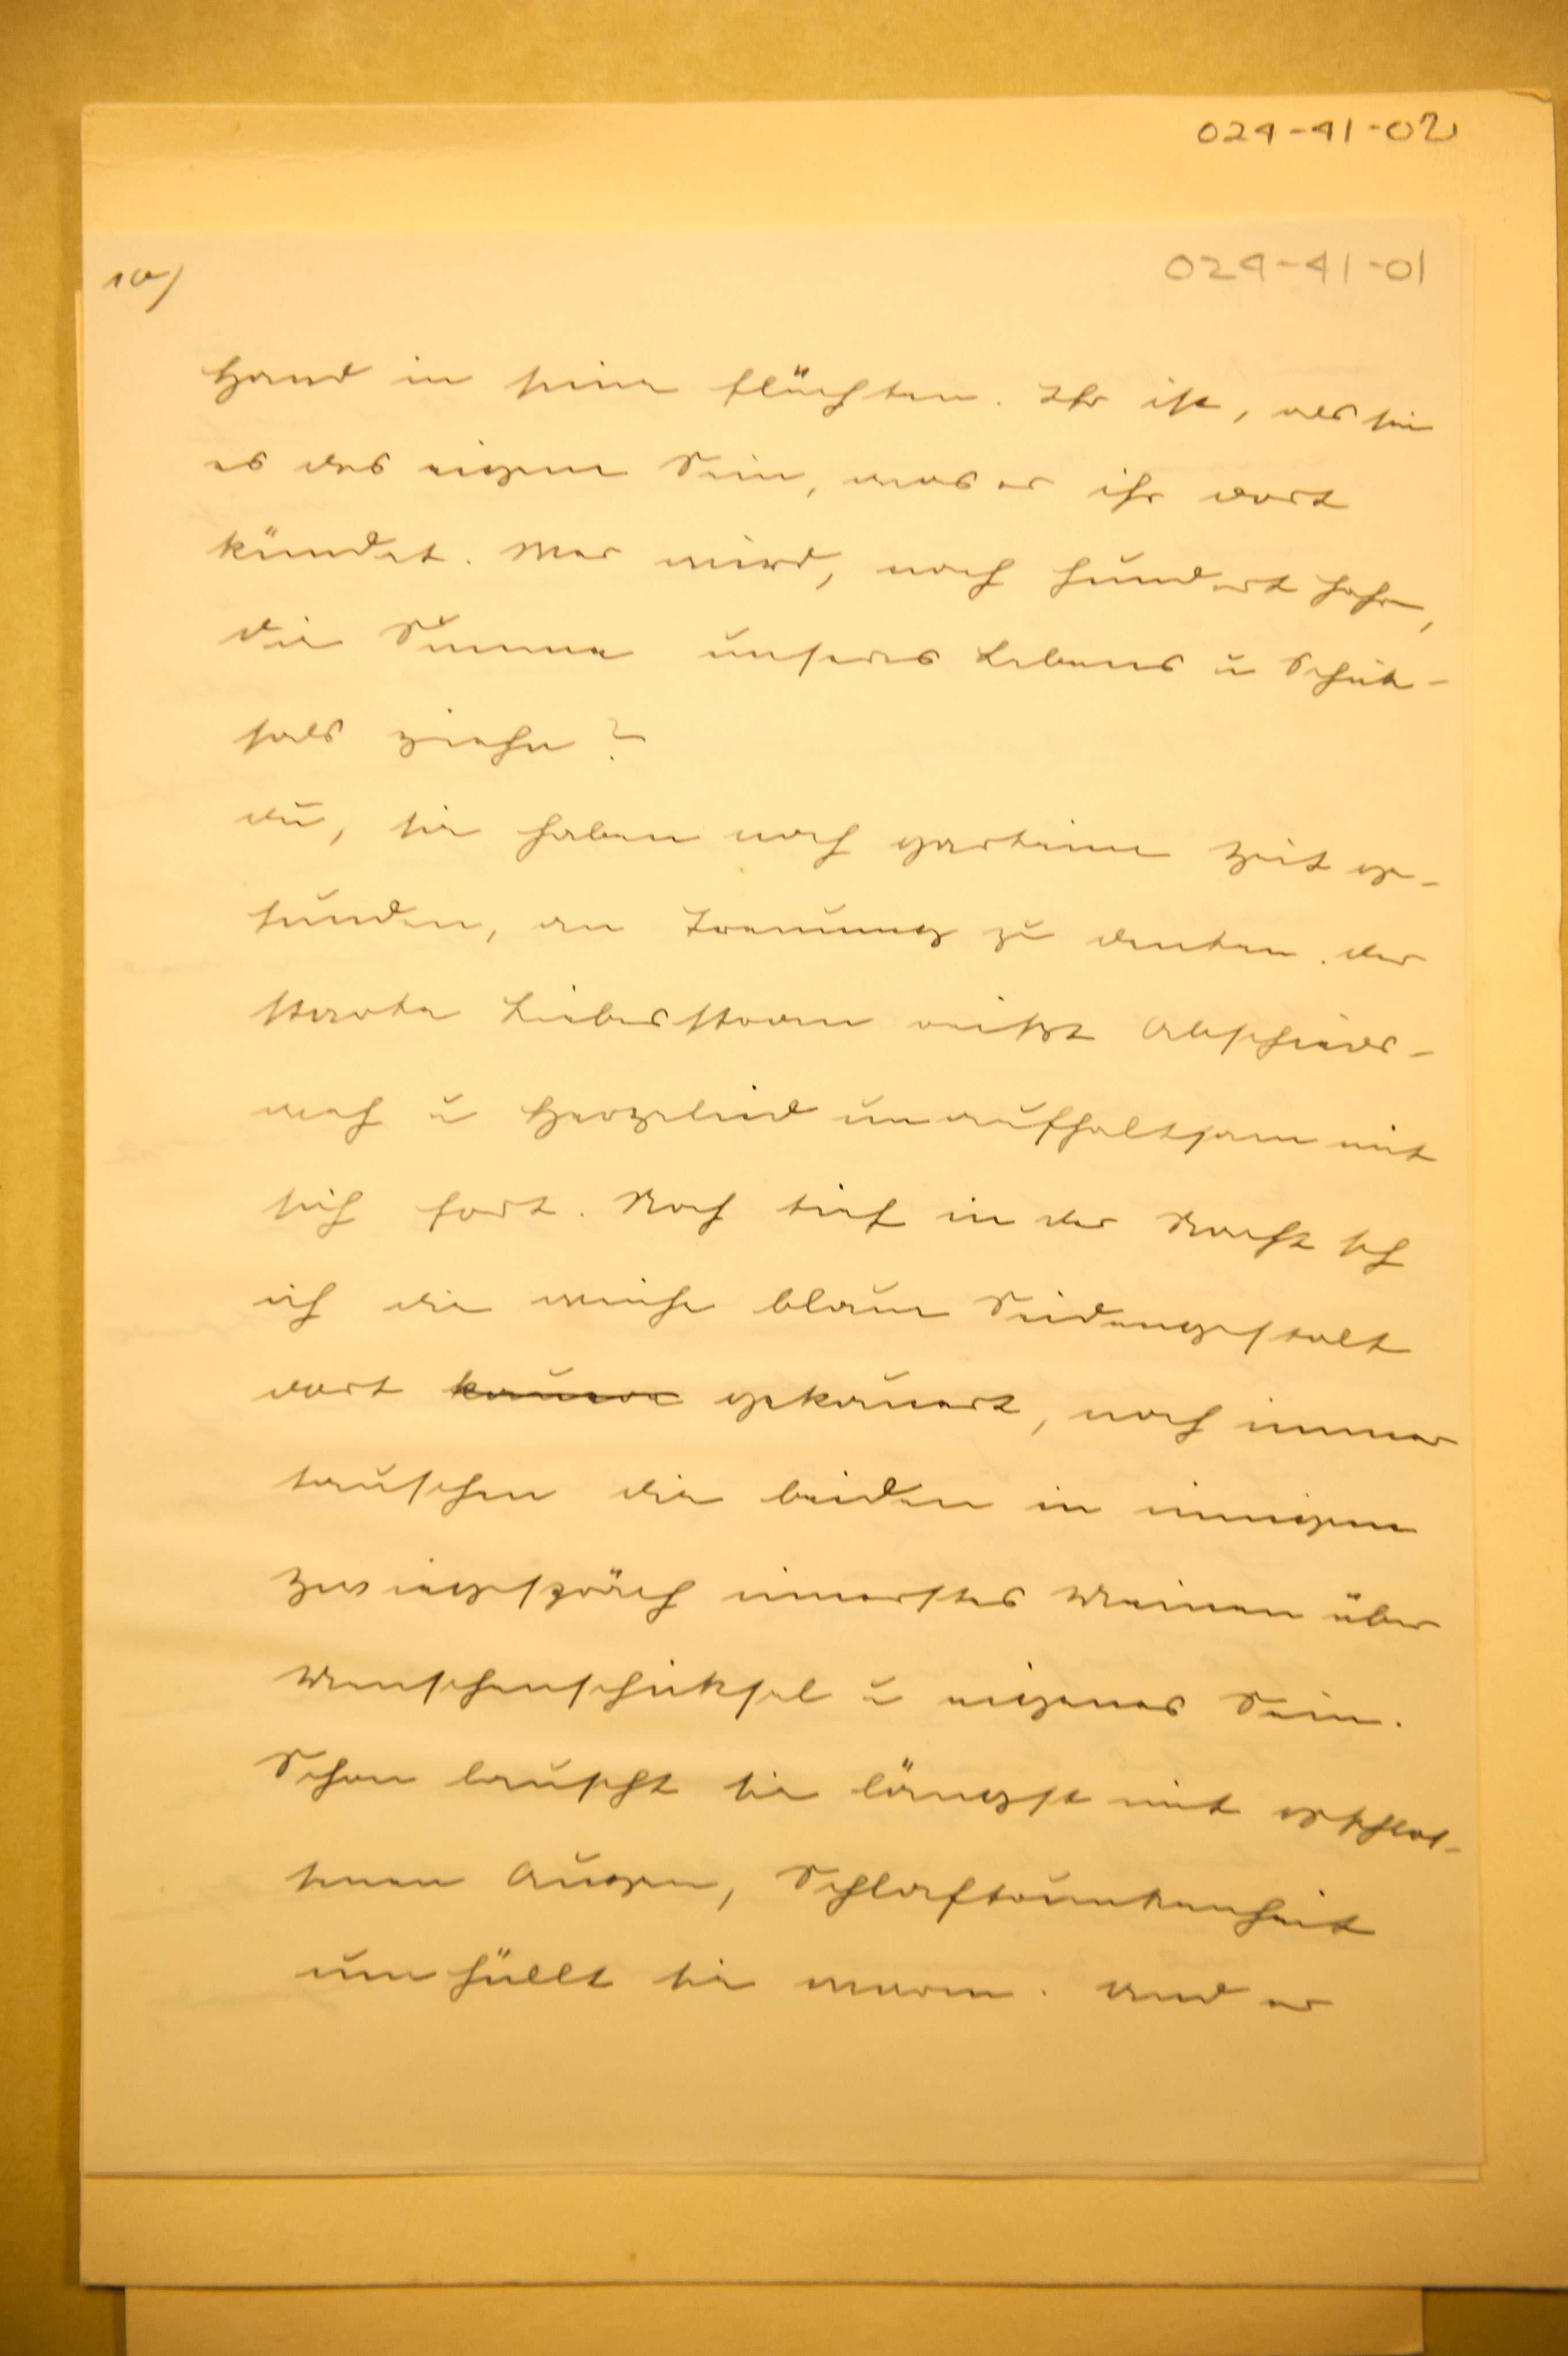 024-41-02
024-41-01
10/
Hand in seine flüchten. Ihr ist, als sei
es das eigene Sein, was er ihr dort
kündet. Wer wird, nach hundert Jahren,
die Summe unseres Lebens u Schick-
sals ziehn?
du, sie haben noch gar keine Zeit ge-
funden, an Trennung zu denken. der
starke Liebesstrom reißt Abschieds-
weh u Herzeleid unaufhaltsam mit
sich fort. Noch tief in der Nacht seh
ich die weiche blaue Seidengestalt
dort kauern gekauert, noch immer
tauschen die beiden in innigem
Zwiegespräch innerstes Meinen über
Menschenschicksal u eigenes Sein.
Schon lauscht sie längst mit geschlos-
senen Augen, Schlaftrunkenheit
umhüllt sie warm. Und er